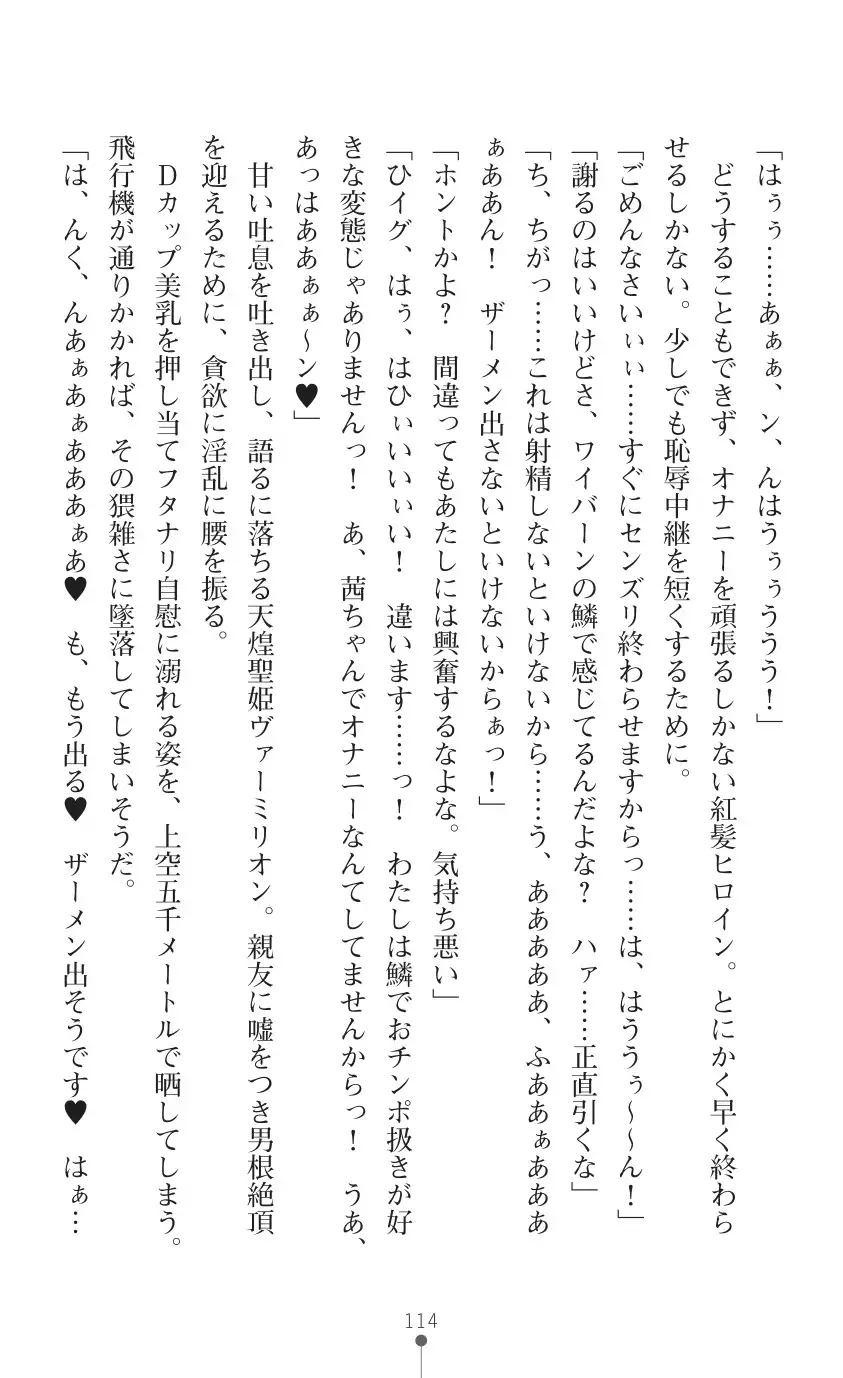 「はぅぅ……あぁぁ、ン、んはうぅぅううう！」
　どうすることもできず、オナニーを頑張るしかない紅髪ヒロイン。とにかく早く終わら
せるしかない。少しでも恥辱中継を短くするために。
「ごめんなさいぃぃ……すぐにセンズリ終わらせますからっ……は、はううぅ～～ん！」
「謝るのはいいけどさ、ワイバーンの鱗で感じてるんだよな？　ハァ……正直引くな」
「ち、ちがっ……これは射精しないといけないから……う、ああああぁ、ふああぁあああ
ぁああん！　ザーメン出さないといけないからぁっ！」
「ホントかよ？　間違ってもあたしには興奮するなよな。気持ち悪い」
「ひイグ、はぅ、はひぃいいぃい！　違います……っ！　わたしは鱗でおチンポ扱きが好
きな変態じゃありませんっ！　あ、茜ちゃんでオナニーなんてしてませんからっ！　うあ、
あっはああぁぁ～ン♥」
　甘い吐息を吐き出し、語るに落ちる天煌聖姫ヴァーミリオン。親友に嘘をつき男根絶頂
を迎えるために、貪欲に淫乱に腰を振る。
　Ｄカップ美乳を押し当てフタナリ自慰に溺れる姿を、上空五千メートルで晒してしまう。
飛行機が通りかかれば、その猥雑さに墜落してしまいそうだ。
「は、んく、んあぁあぁあああぁあ♥　も、もう出る♥　ザーメン出そうです♥　はぁ…
114